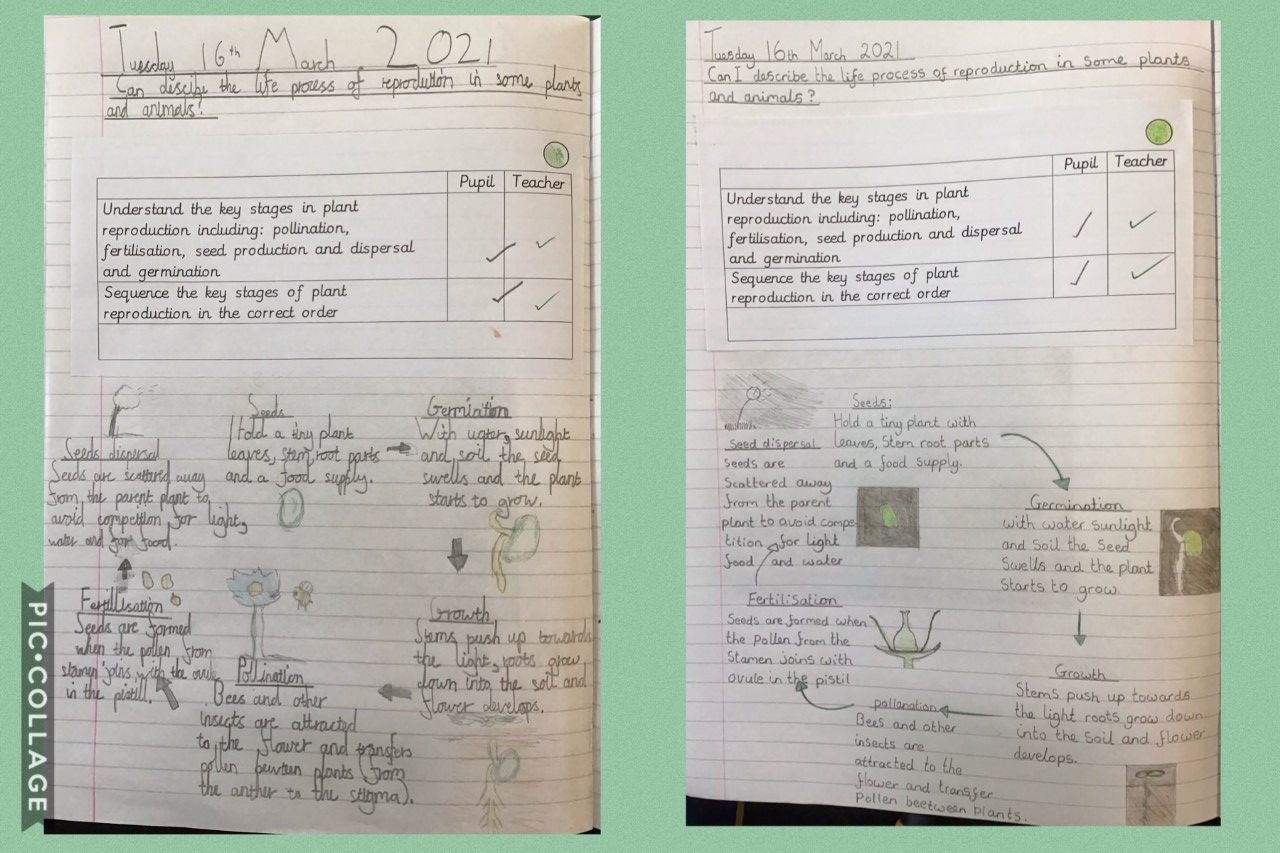 Tuesday 16th March 2021
Can discibe the life process of reproduction in some plants
and animals?
Pupil Teacher
Understand the key stages in plant
reproduction including: pollination,
fertilisation, seed production and dispersal
and germination
Sequence the key stages of plant
reproduction in the correct order
Seeds
Hold a tiny plant
leaves, stem, root parts
and a food supply.
Germintion
With water, sunlight
and soil the seed
swells and the plant
starts to grow.
Seeds dispersal
Seeds are scattered away
from the parent plant to
avoid competition for light,
water and for food.
Fertillisation
Seeds are formed
when the pollen from
stamen joins with the ovule
in the pistill.
Pollination
Bees and other
insects are attracted
to the flower and transfers
pollen bewteen plants (from
the anther to the stigma).
Growth
Stems push up towards
the light, roots grow
down into the soil and
flower develops.
PIC•COLLAGE
Tuesday 16th March 2021
Can I describe the life process of reproduction in some plants
and animals?
Pupil Teacher
Understand the key stages in plant
reproduction including: pollination,
fertilisation, seed production and dispersal
and germination
Sequence the key stages of plant
reproduction in the correct order
Seeds:
Hold a tiny plant with
leaves, stem root parts
and a food supply.
Seed dispersal
Seeds are
Scattered away
from the parent
plant to avoid compe
tition for light
food and water
Germination
with water sunlight
and soil the seed
Swells and the plant
Starts to grow.
Fertilisation
Seeds are formed when
the pollen from the
Stamen joins with
ovule in the pistil
Growth
Stems push up towards
the light roots grow down
into the soil and flower
develops.
pollanation
Bees and other
insects are
attracted to the
flower and transfer
Pollen beetween plants.